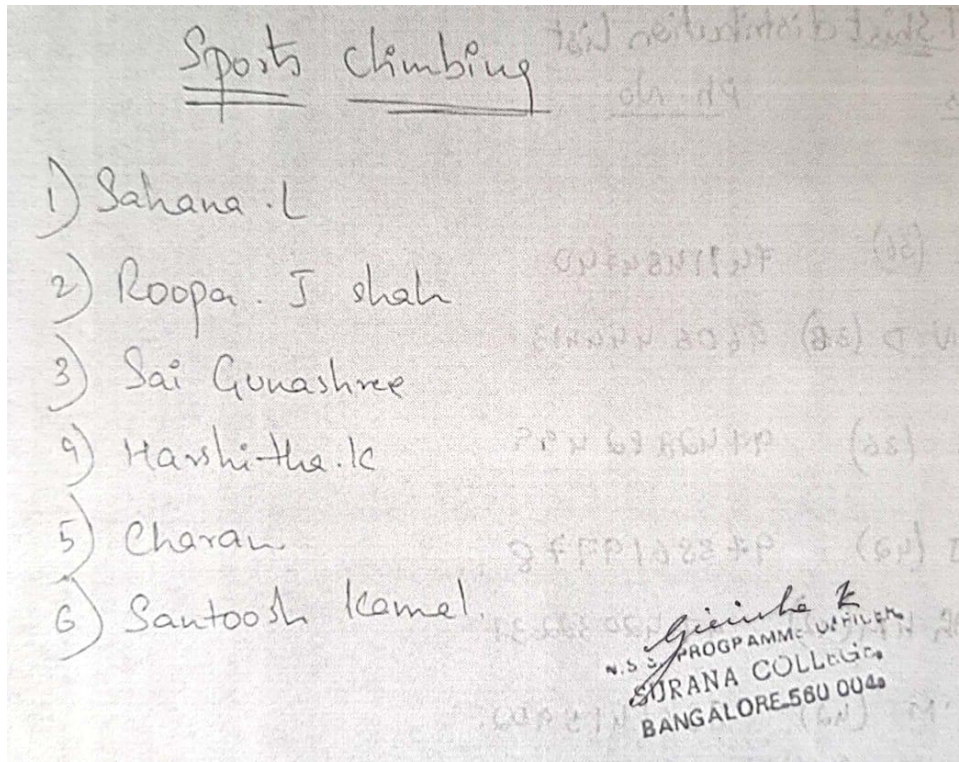 Sports climbing
1) Sahana . L
2) Roopa . J shah
3) Sai Gunashree
4) Harshitha . k
5) Charan
6) Santoosh kamal .
N.S.S. PROGRAMME OFFICER
SURANA COLLEGE
BANGALORE-560 004.